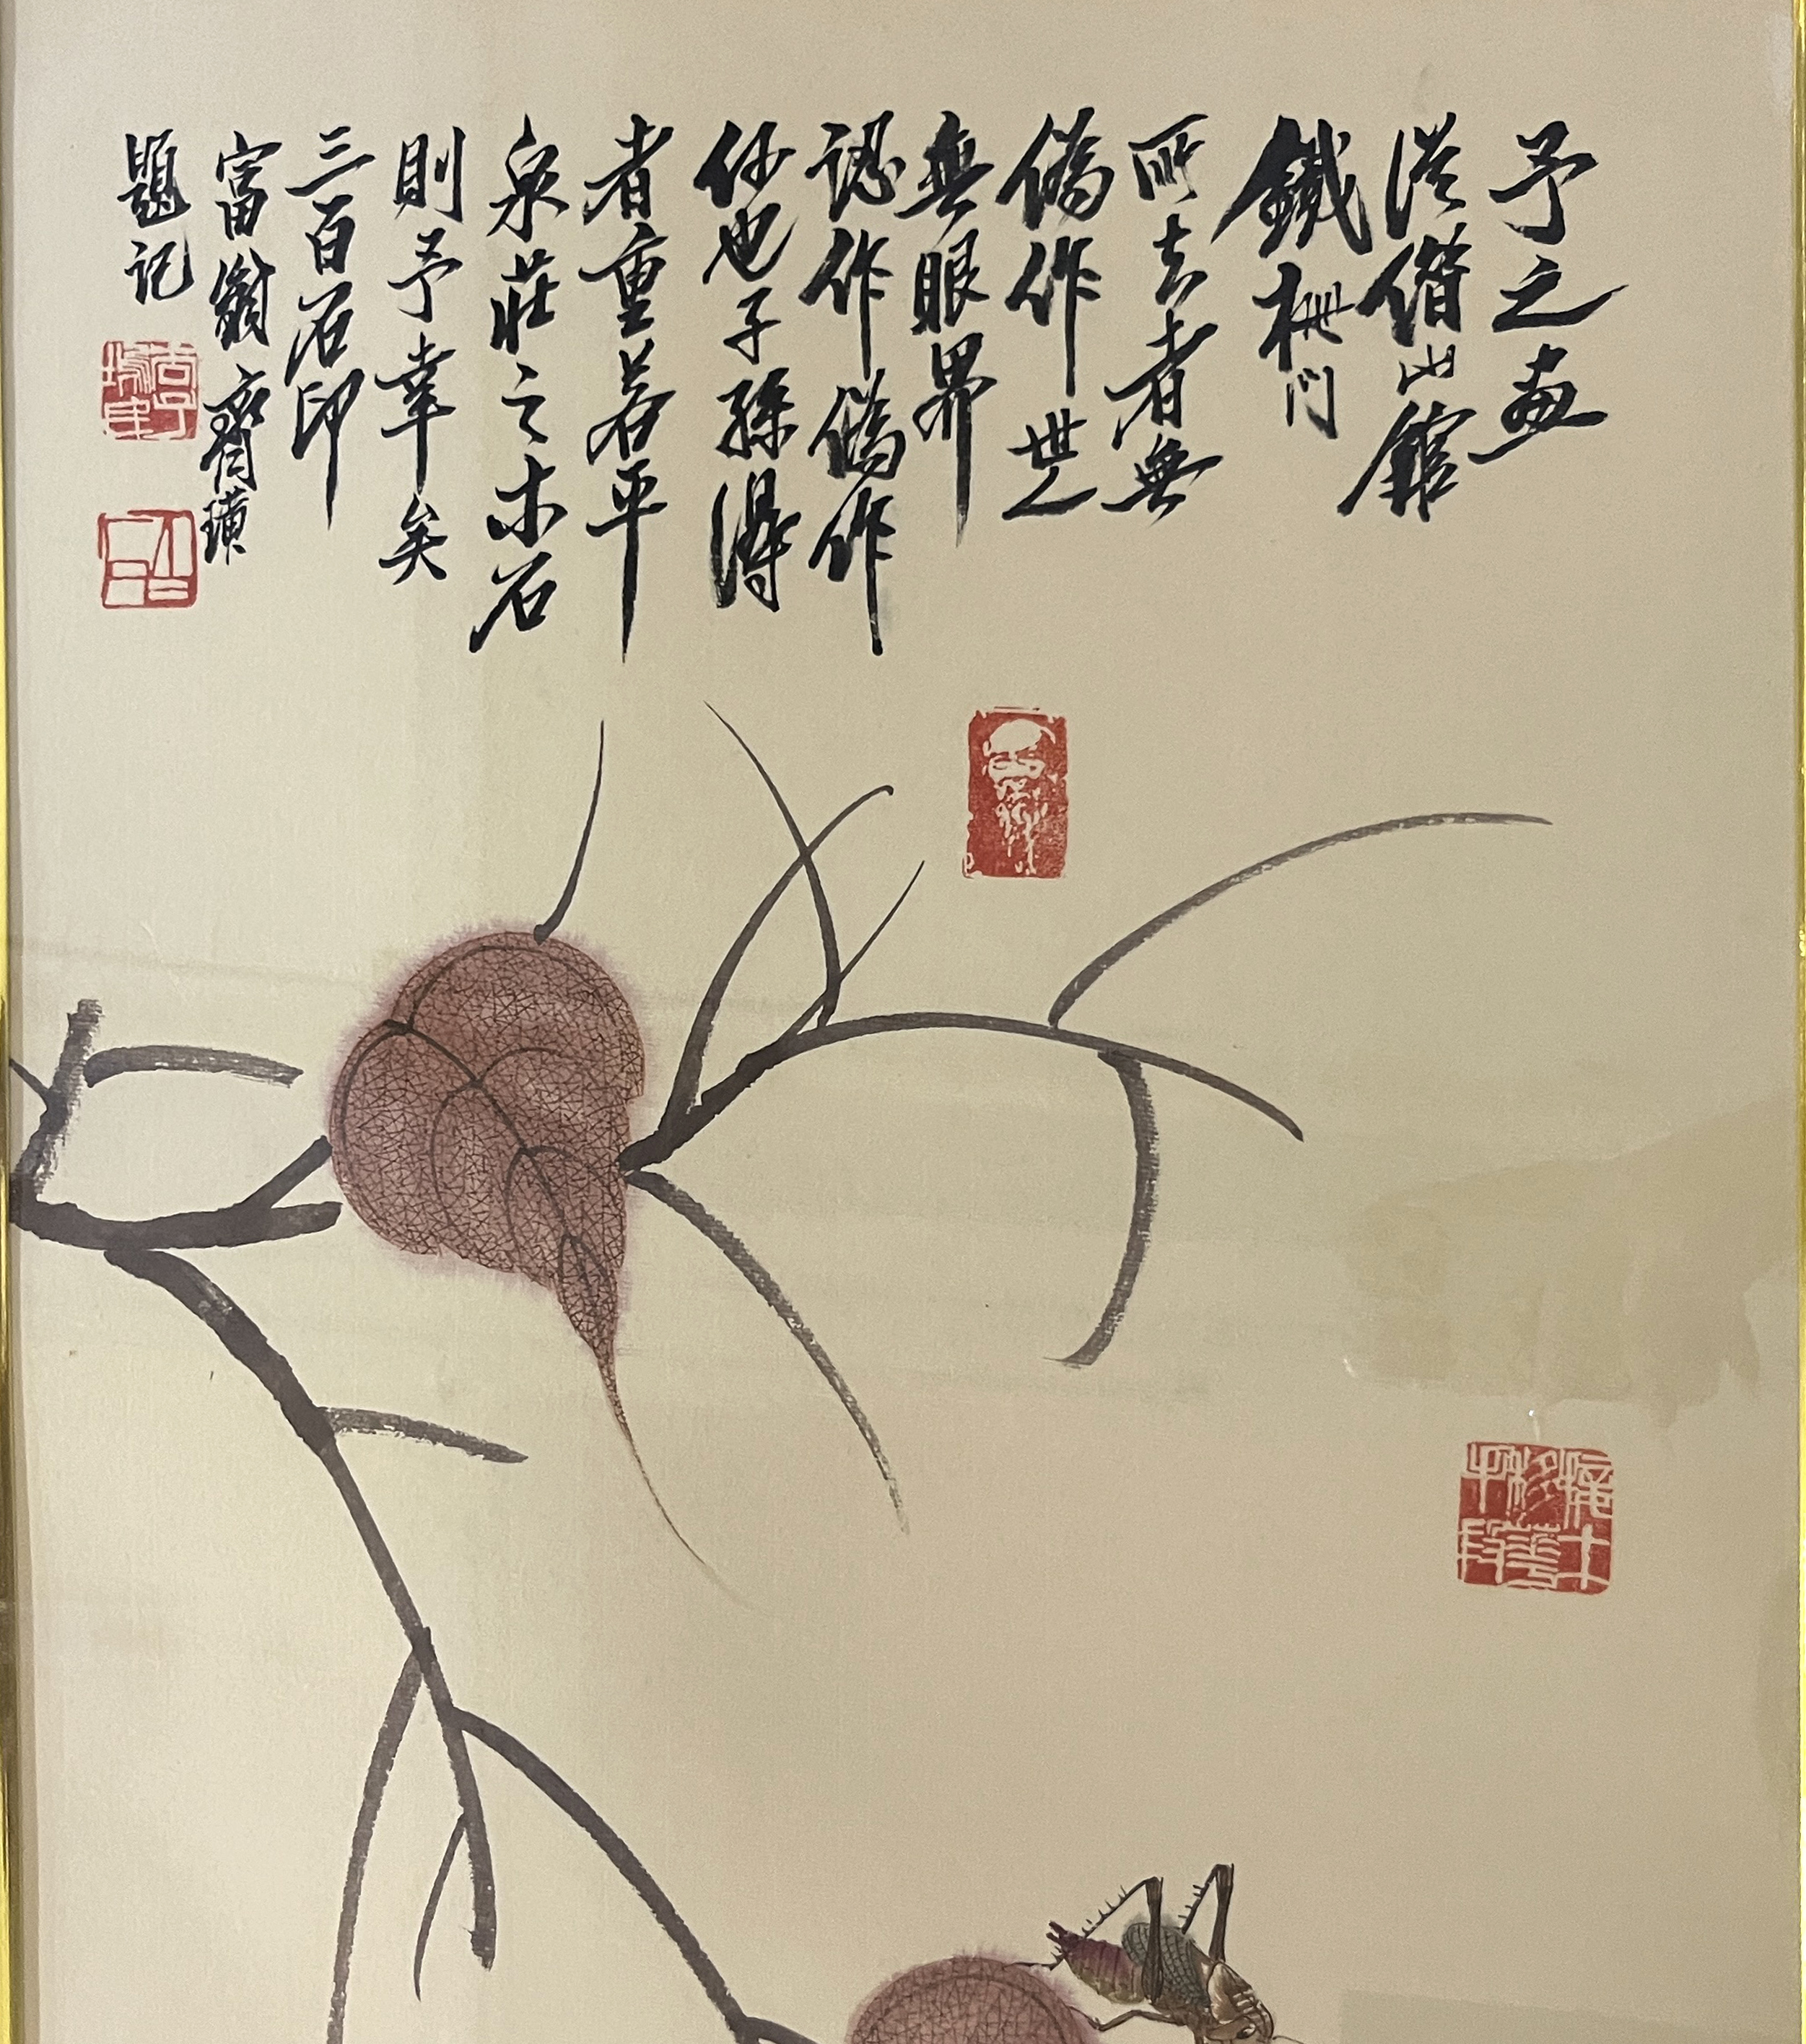 予之畫
從借山館
鐵柵門
所去者無
偽作世人
無眼界
認作偽作
何也子孫得
者重若平
泉莊之木石
則予幸矣
三百石印
富翁齊璜
題記
接木移花手段